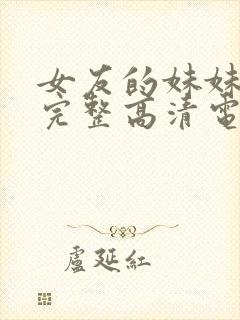 女友的妹妹
完整高清電
盧延紅